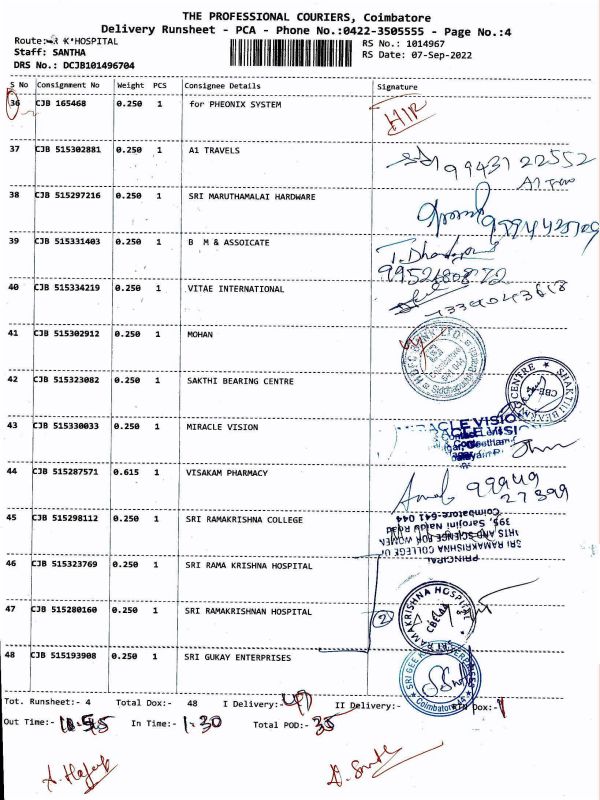 THE PROFESSIONAL COURIERS, Coimbatore
Delivery Runsheet - PCA - Phone No.:0422-3505555 - Page No.:4
Route:- R K HOSPITAL
RS No.: 1014967
Staff: SANTHA
RS Date: 07-Sep-2022
DRS No.: DCJB101496704
S No Consignment No Weight PCS Consignee Details Signature
36 CJB 165468 0.250 1 for PHEONIX SYSTEM
37 CJB 515302881 0.250 1 A1 TRAVELS 99431 22552
38 CJB 515297216 0.250 1 SRI MARUTHAMALAI HARDWARE
39 CJB 515331403 0.250 1 B M & ASSOICATE
40 CJB 515334219 0.250 1 VITAE INTERNATIONAL
41 CJB 515302912 0.250 1 MOHAN
42 CJB 515323082 0.250 1 SAKTHI BEARING CENTRE
SHAKTHI BEARING CENTRE CBE
43 CJB 515330033 0.250 1 MIRACLE VISION
MIRACLE VISION
44 CJB 515287571 0.615 1 VISAKAM PHARMACY 99949
27399
45 CJB 515298112 0.250 1 SRI RAMAKRISHNA COLLEGE
PRINCIPAL
SRI RAMAKRISHNA COLLEGE OF
ARTS AND SCIENCE FOR WOMEN
395, Sarojini Naidu Road
Coimbatore-641 044
46 CJB 515323769 0.250 1 SRI RAMA KRISHNA HOSPITAL
47 CJB 515280160 0.250 1 SRI RAMAKRISHNAN HOSPITAL 2
RAMAKRISHNA HOSPITAL
48 CJB 515193908 0.250 1 SRI GUKAY ENTERPRISES
Coimbatore
Tot. Runsheet:- 4 Total Dox:- 48 I Delivery:- 47 II Delivery:- Dox:- 1
Out Time:- In Time:- 1.30 Total POD:- 35